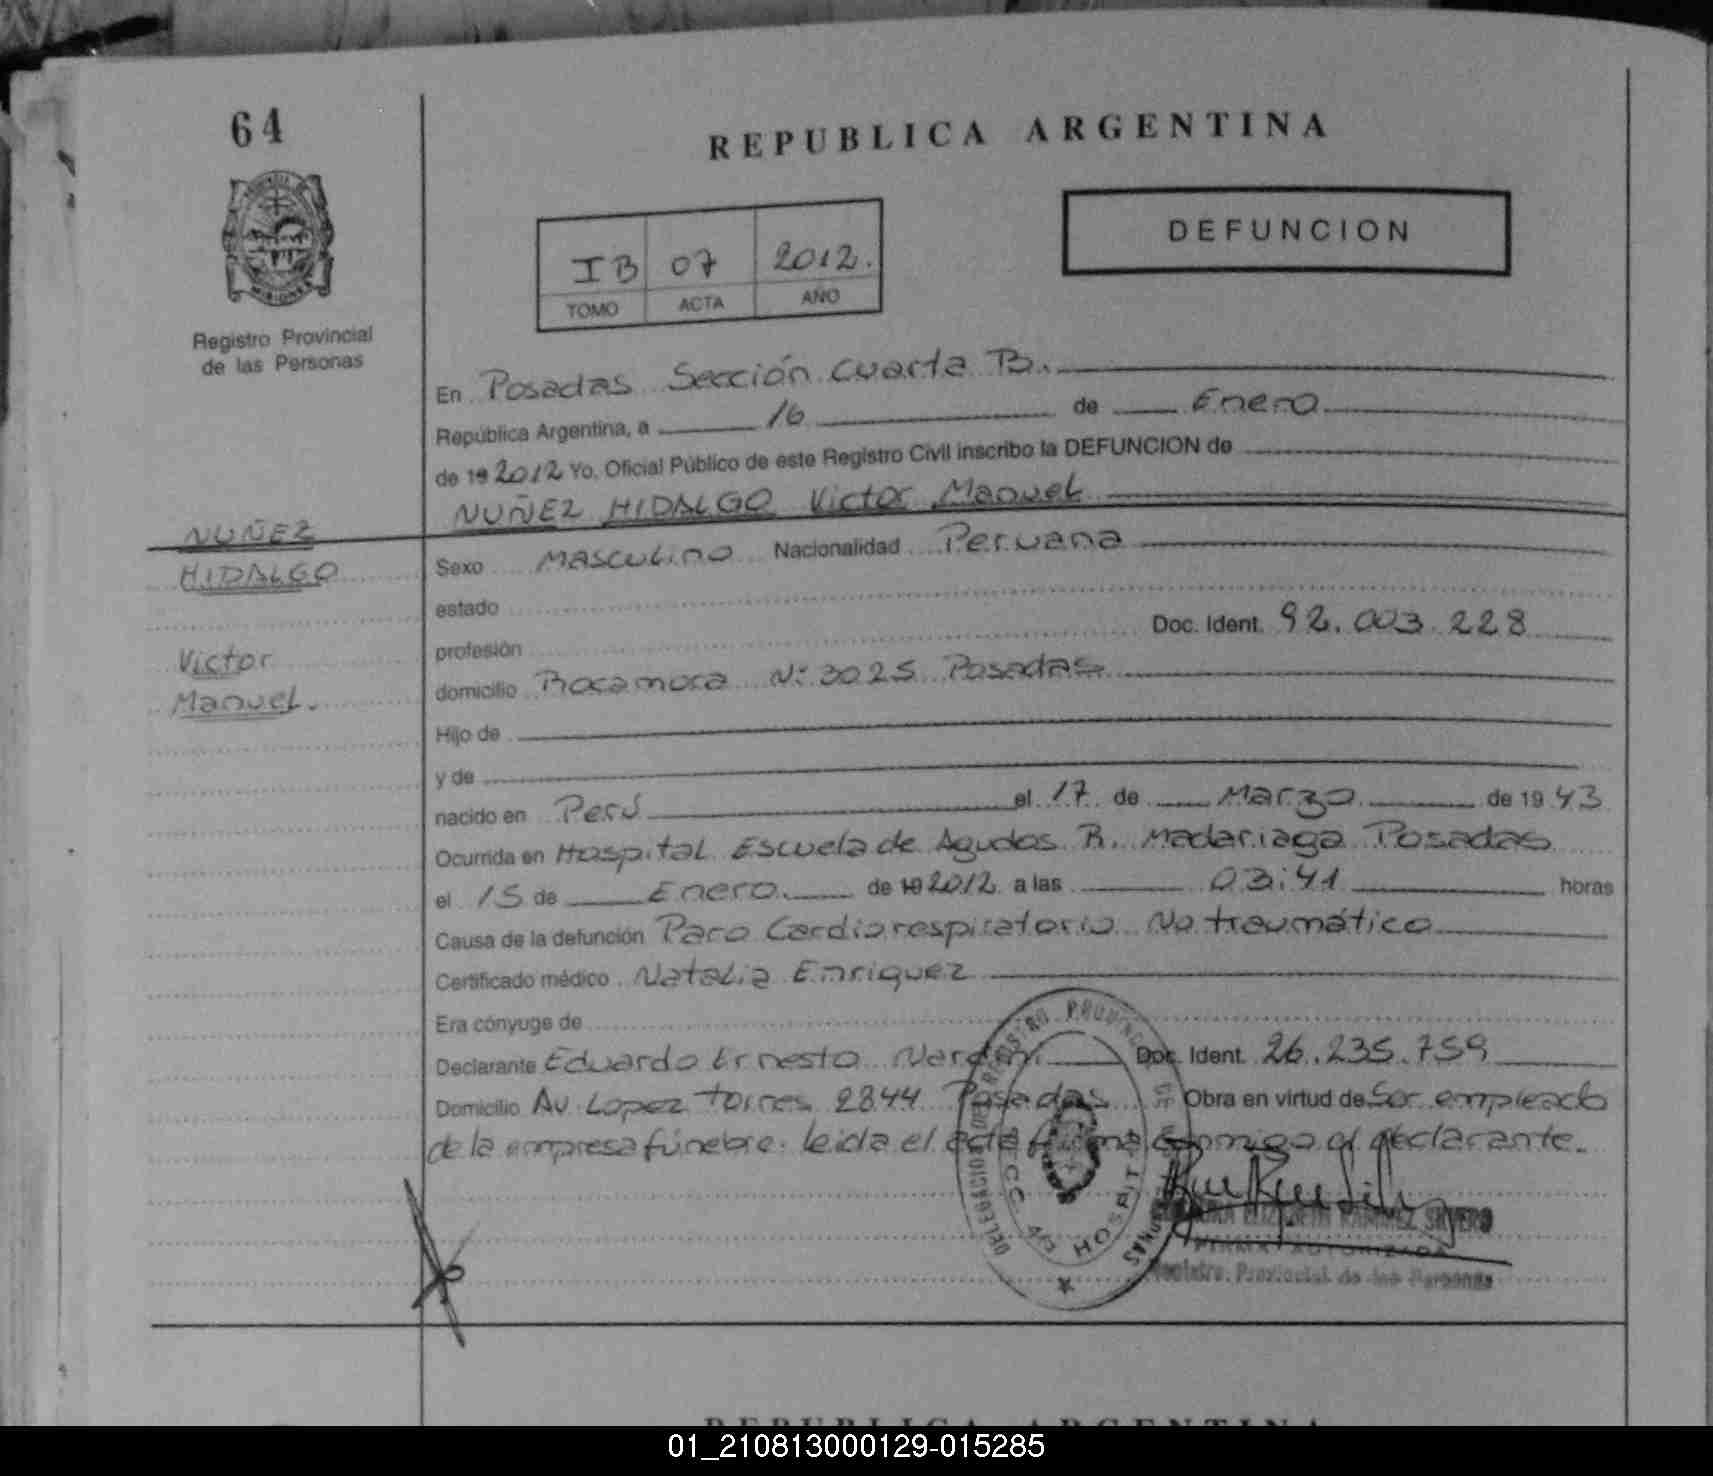 64
REPUBLICA ARGENTINA
DEFUNCION
IB 07 2012.
TOMO ACTA AÑO
Registro Provincial
de las Personas
En Posadas Sección Cuarta B.
República Argentina, a 16 de Enero
de 19 2012 Yo, Oficial Público de este Registro Civil inscribo la DEFUNCION de
NUÑEZ HIDALGO Victor Manuel
NUÑEZ
HIDALGO
Victor
Manuel.
Sexo Masculino Nacionalidad Peruana
estado
profesión Doc. Ident. 92.003.228
domicilio Rocamora N: 3025 Posadas
Hijo de
y de
nacido en Perú el 17 de Marzo de 19 43
Ocurrida en Hospital Escuela de Agudos R. Madariaga Posadas
el 15 de Enero de 19 2012 a las 03:41 horas
Causa de la defunción Paro Cardiorespiratorio No traumático
Certificado médico Natalia Enriquez
Era cónyuge de
Declarante Eduardo Ernesto Doc. Ident. 26.235.759
Domicilio Av. Lopez Torres 2844 Posadas Obra en virtud de Ser empleado
de la empresa fúnebre. leida el acta firma conmigo el declarante.
ELIZABETH RAMIREZ SILVERO
FIRMA AUTORIZADA
Registro Provincial de las Personas
REPUBLICA ARGENTINA
01_210813000129-015285